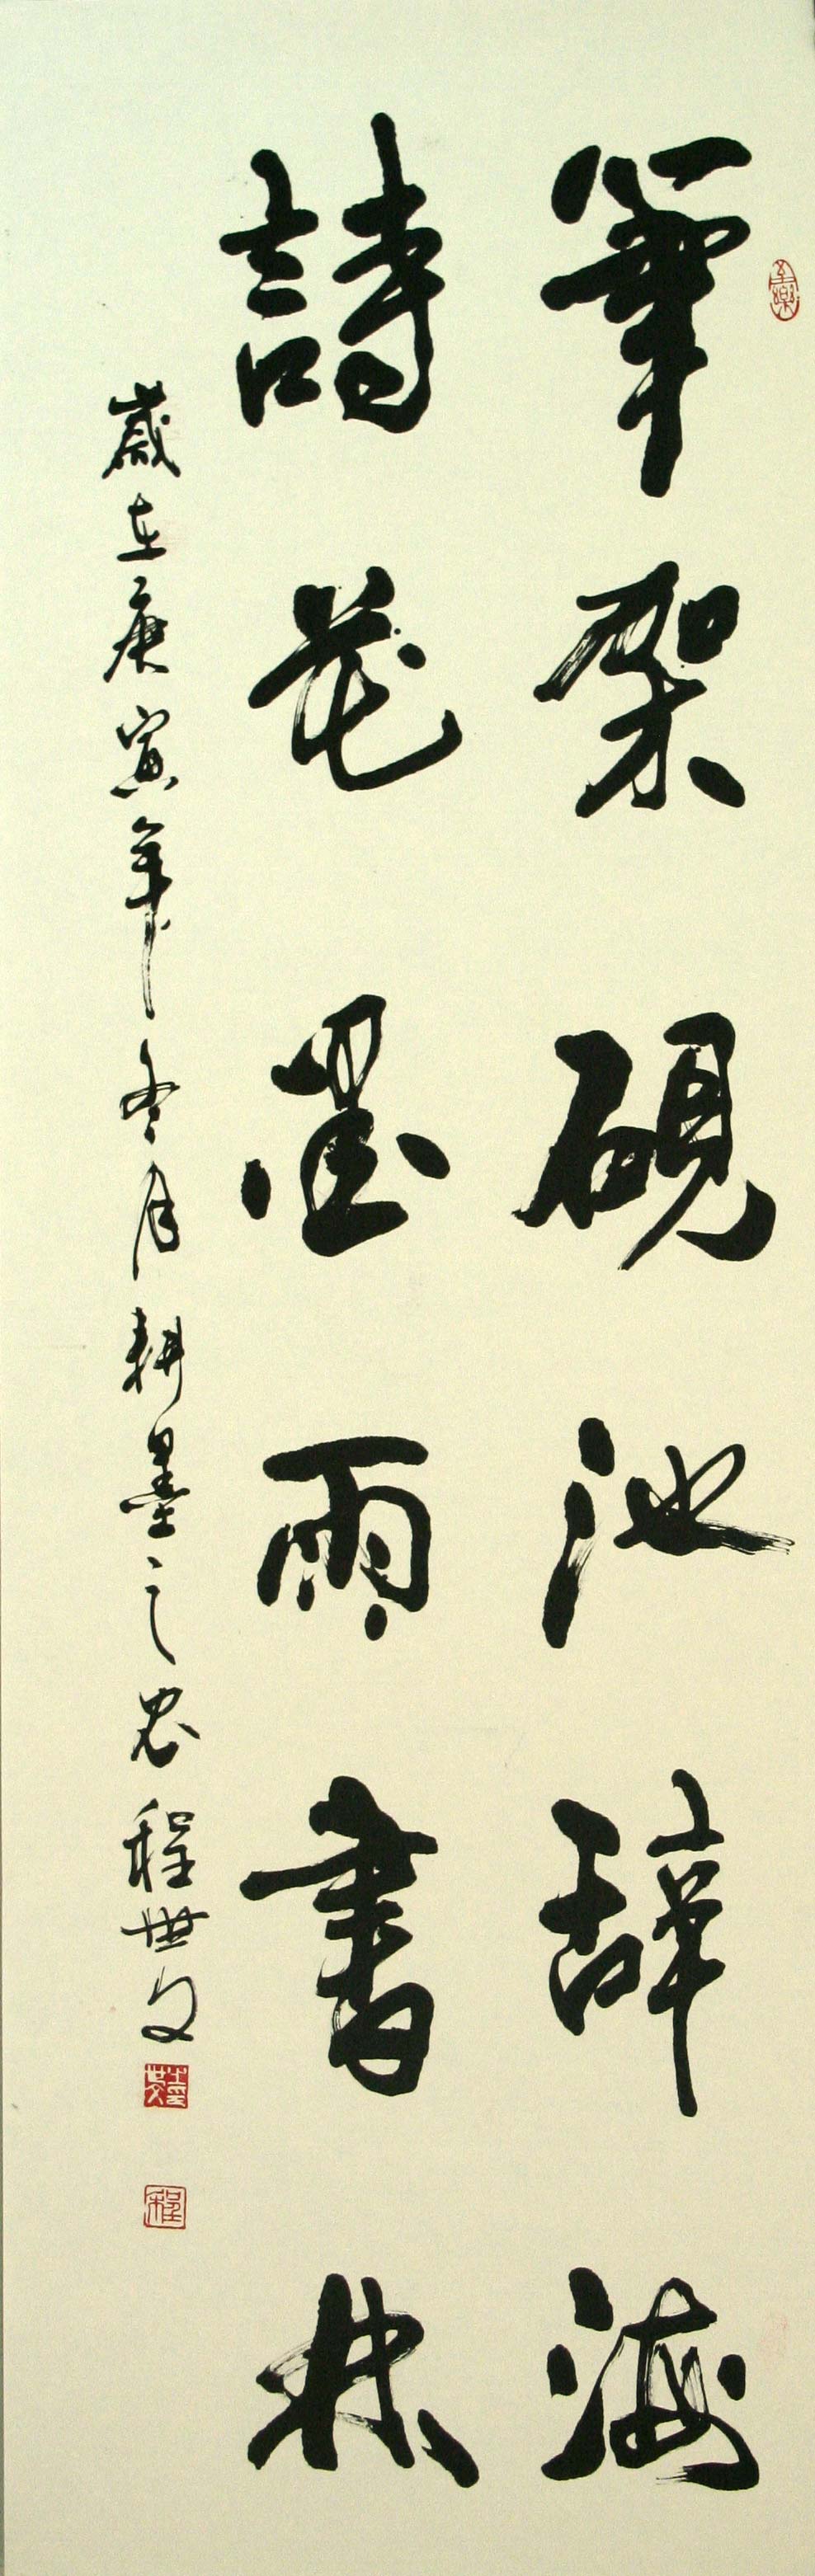 筆架硯池辞海
詩花墨雨書林
歲在庚寅年冬月耕墨之忠程世文